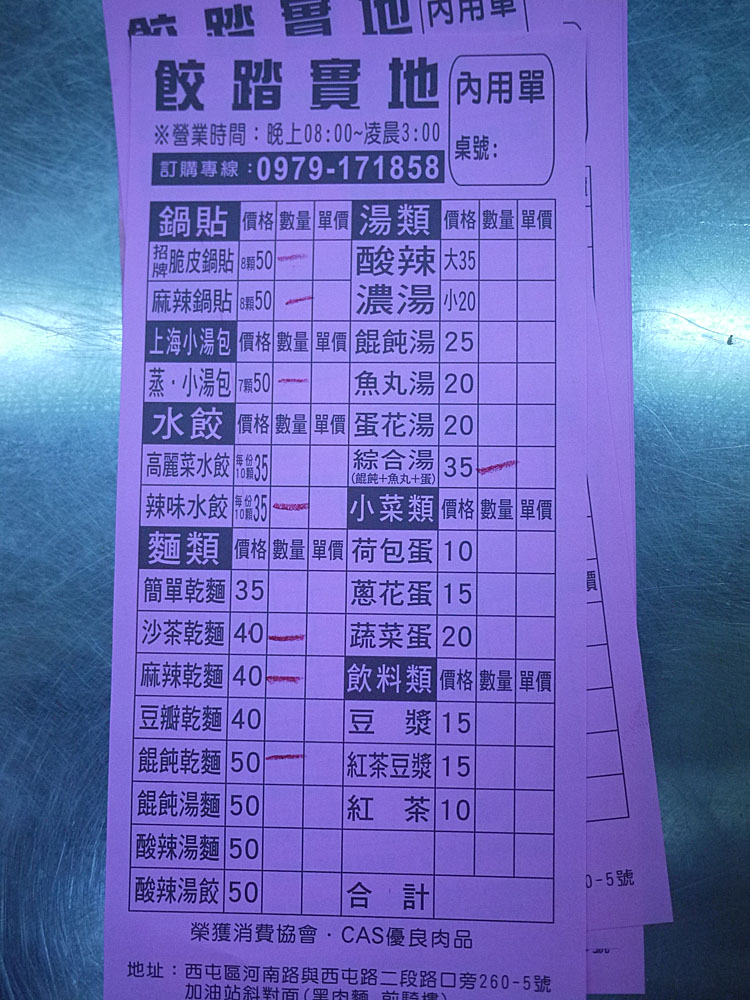 餃踏實地 內用單
餃踏實地 內用單
※營業時間：晚上08:00~凌晨3:00
桌號：
訂購專線：0979-171858
鍋貼 價格 數量 單價 湯類 價格 數量 單價
招牌脆皮鍋貼 8顆50 酸辣 大35
麻辣鍋貼 8顆50 濃湯 小20
上海小湯包 價格 數量 單價 餛飩湯 25
蒸・小湯包 7顆50 魚丸湯 20
水餃 價格 數量 單價 蛋花湯 20
高麗菜水餃 每份10顆35 綜合湯 (餛飩+魚丸+蛋) 35
辣味水餃 每份10顆35 小菜類 價格 數量 單價
麵類 價格 數量 單價 荷包蛋 10
簡單乾麵 35 蔥花蛋 15
沙茶乾麵 40 蔬菜蛋 20
麻辣乾麵 40 飲料類 價格 數量 單價
豆瓣乾麵 40 豆漿 15
餛飩乾麵 50 紅茶豆漿 15
餛飩湯麵 50 紅茶 10
酸辣湯麵 50
酸辣湯餃 50 合計
榮獲消費協會・CAS優良肉品
地址：西屯區河南路與西屯路二段路口旁260-5號
加油站斜對面(黑肉麵 前騎樓)
0-5號